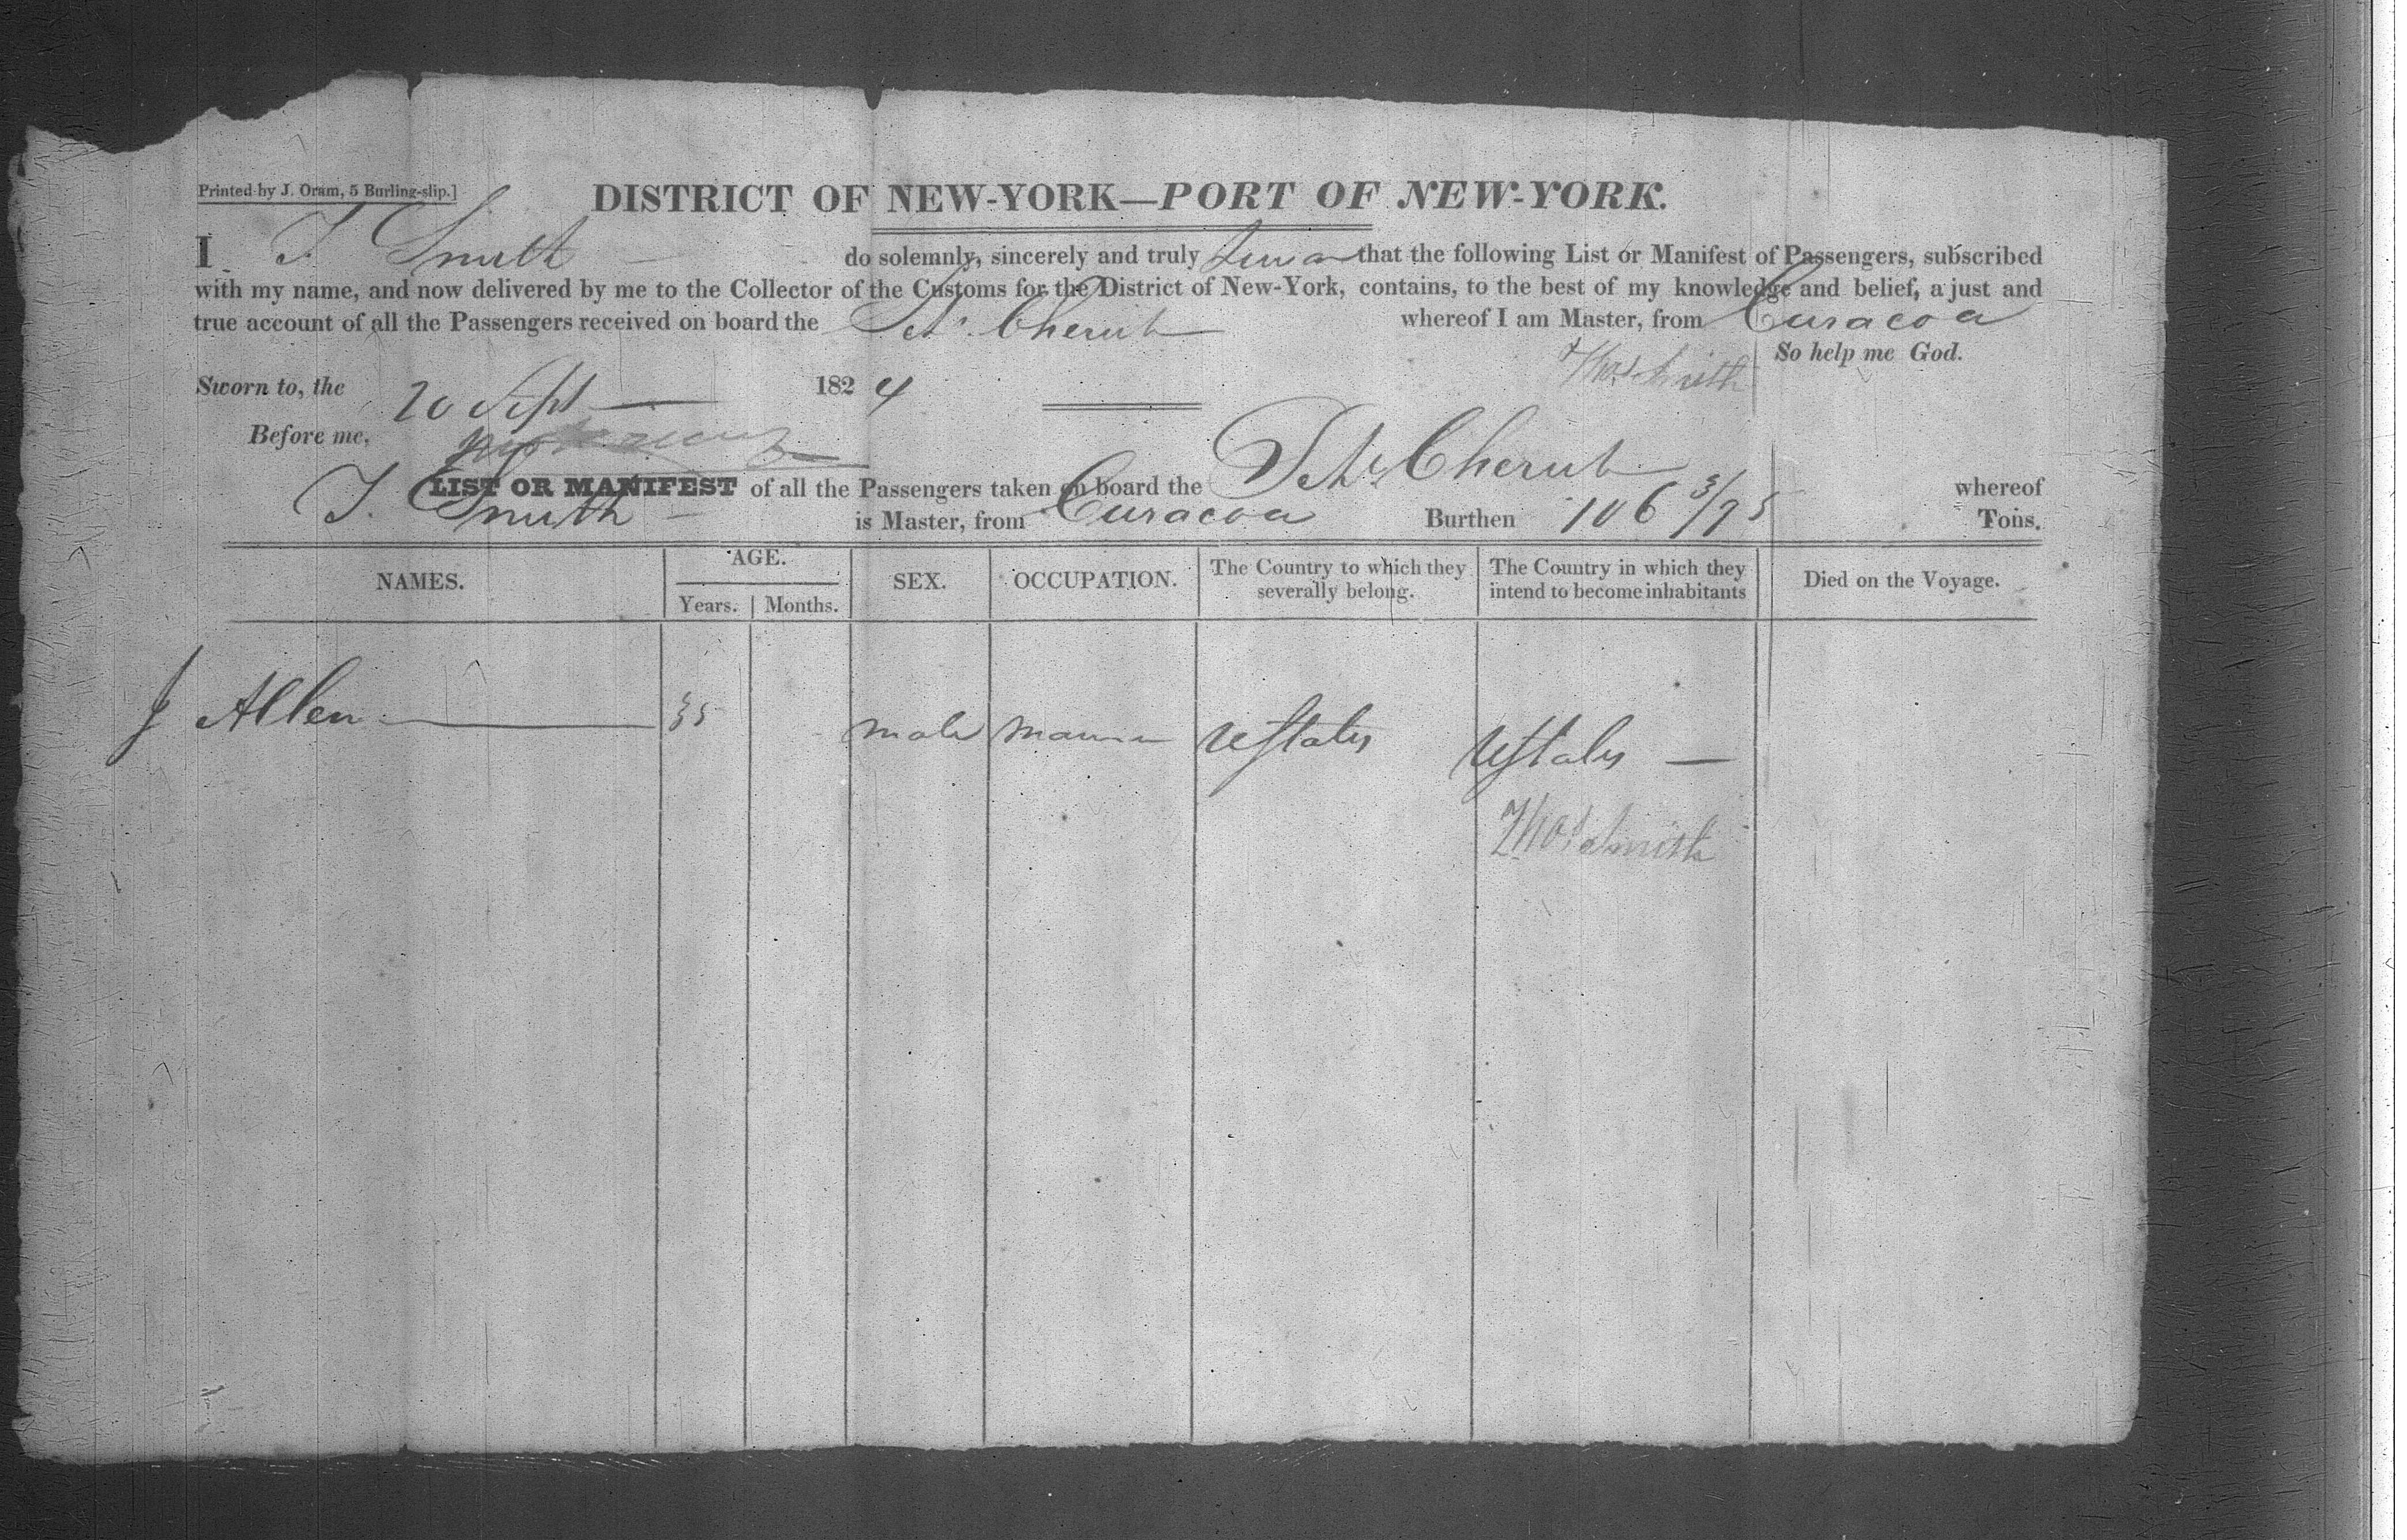 Printed by J. Oram, 5 Burling-slip.]
DISTRICT OF NEW-YORK—PORT OF NEW-YORK.
I T Smith do solemnly, sincerely and truly swear that the following List or Manifest of Passengers, subscribed
with my name, and now delivered by me to the Collector of the Customs for the District of New-York, contains, to the best of my knowledge and belief, a just and
true account of all the Passengers received on board the Schr Cherub whereof I am Master, from Curacoa
So help me God.
Thos Smith
Sworn to, the 20 Sept 1824
Before me,
LIST OR MANIFEST of all the Passengers taken on board the Schr Cherub whereof
T. Smith is Master, from Curacoa Burthen 106 3/95 Tons.
NAMES. AGE. Years. Months. SEX. OCCUPATION. The Country to which they severally belong. The Country in which they intend to become inhabitants Died on the Voyage.
J Allen 35 male marine UStates UStates —
Thos Smith